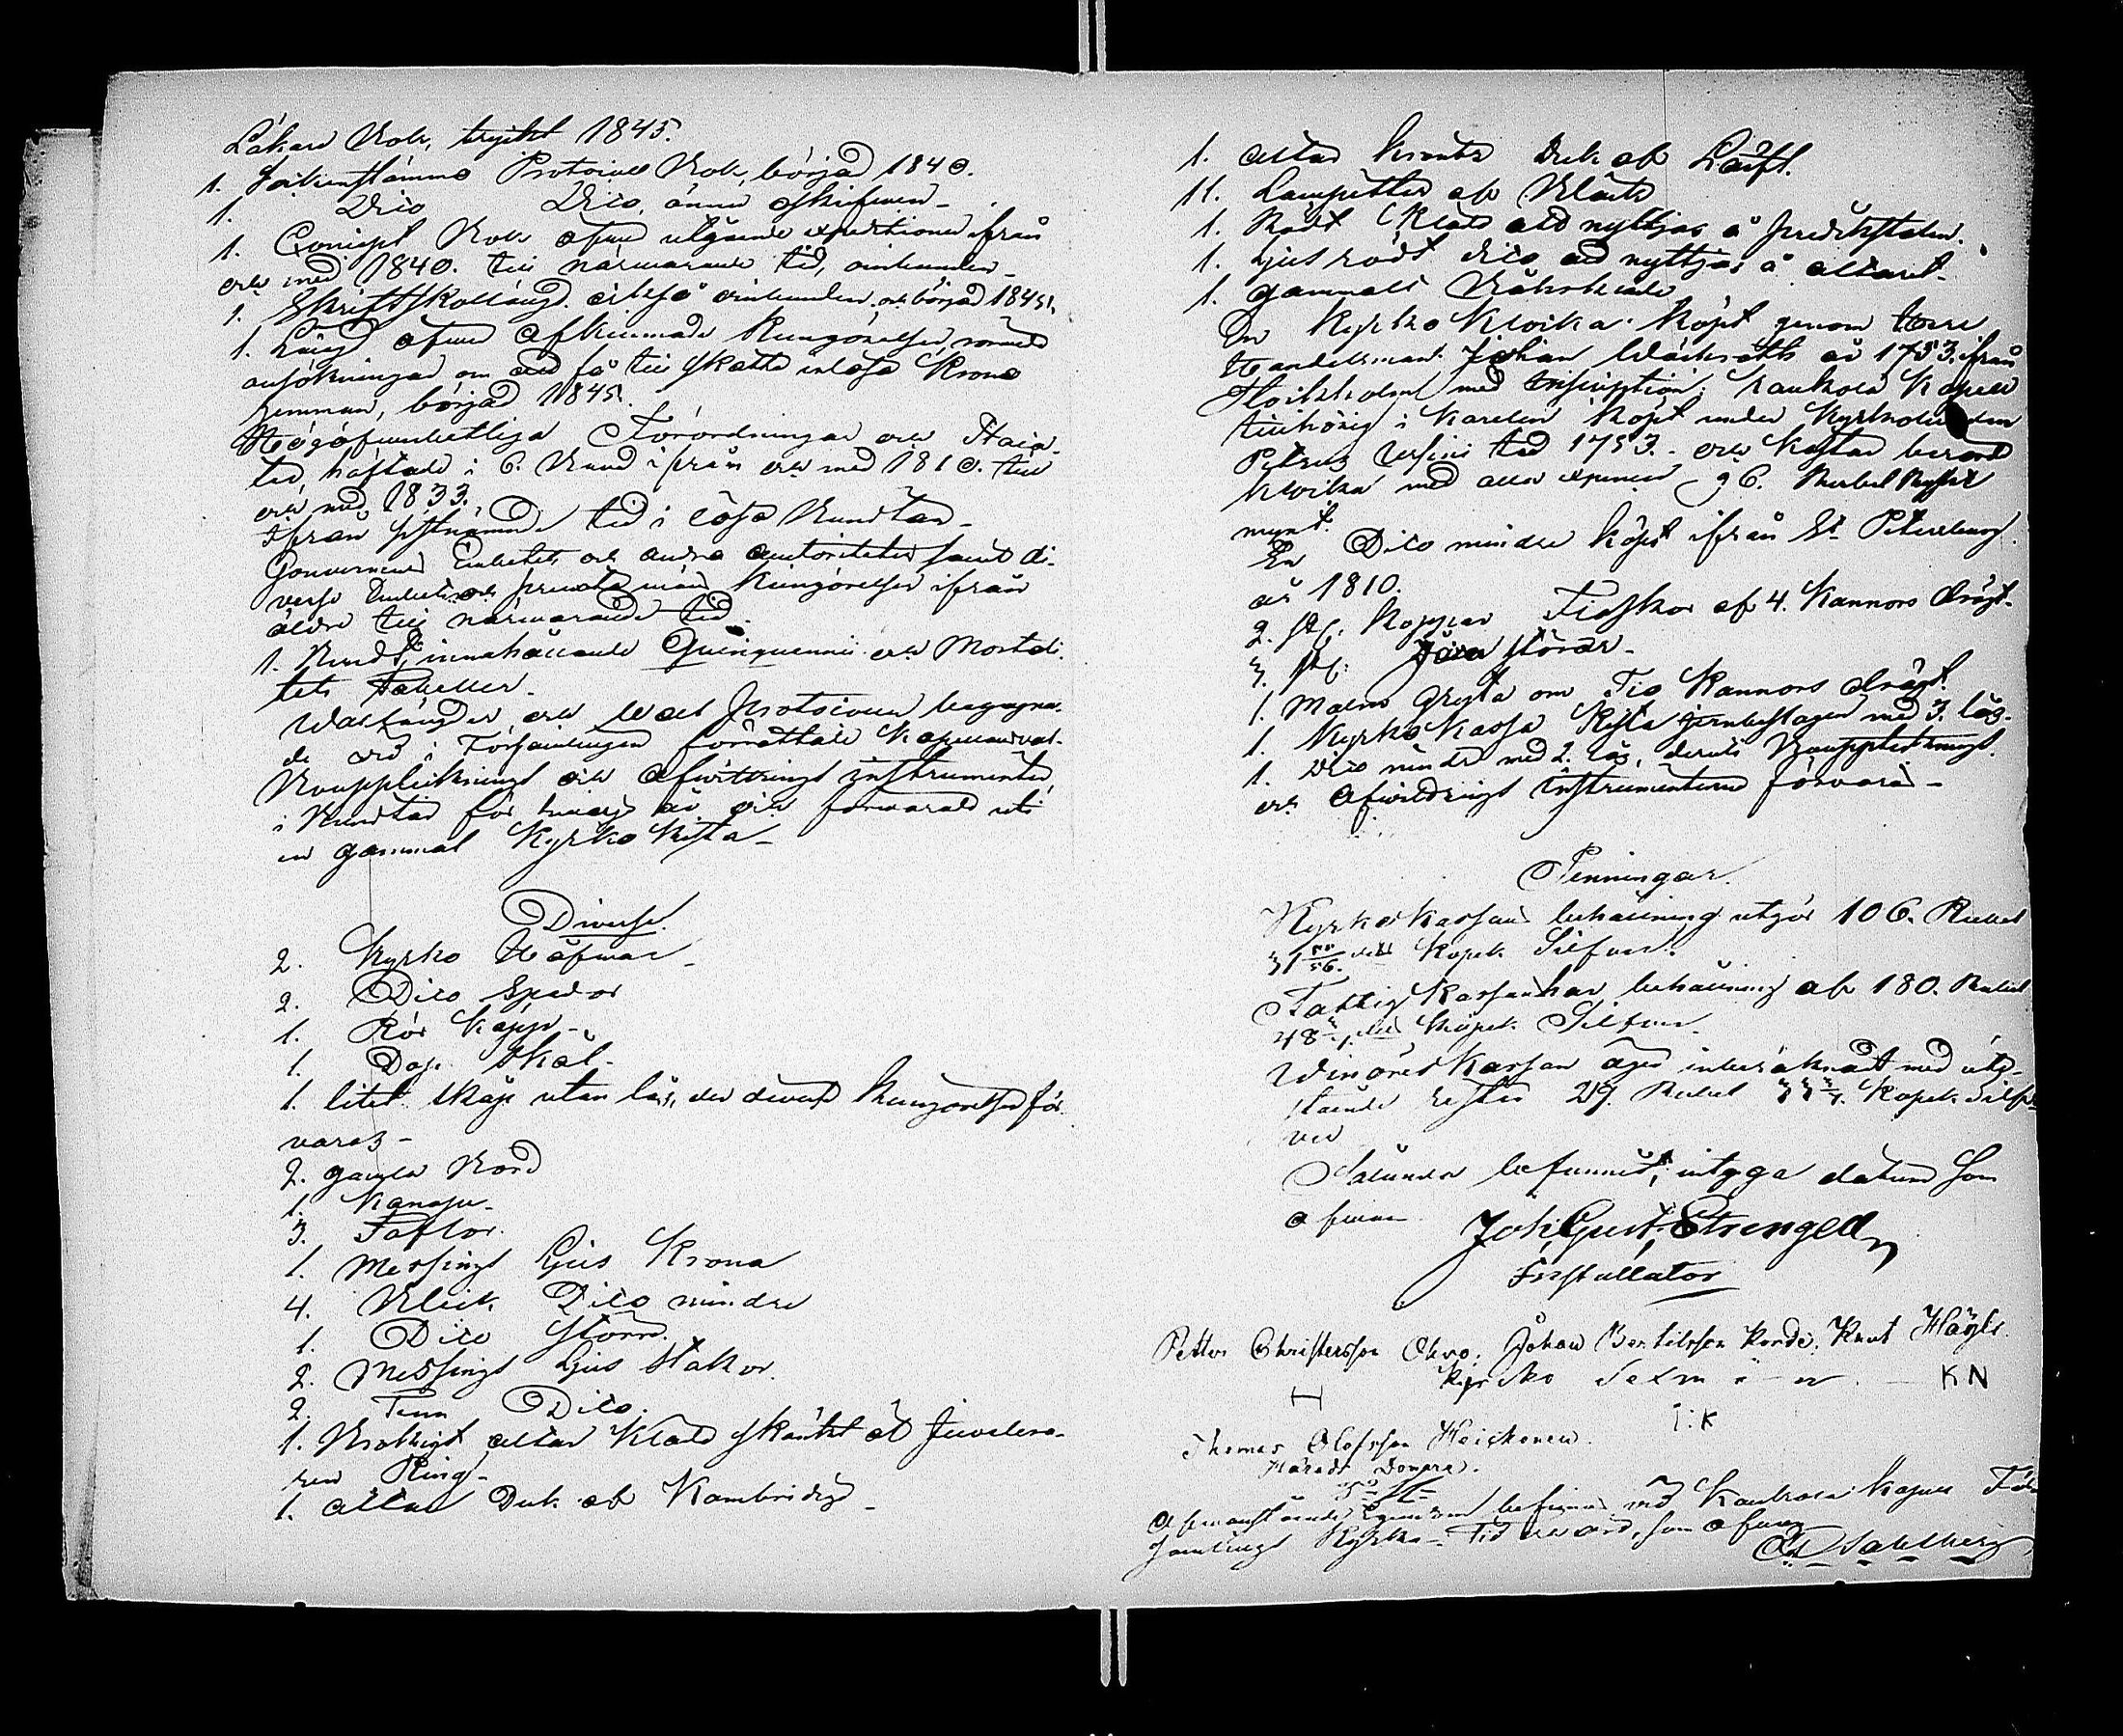 Läkare Bok, tryckt 1845.
1. Sockenstämmo Protocolls Bok, börjad 1840.
1. Dito Dito, ännu oskrifven
1. Concept Bok öfver utgående expeditioner ifrån
och med 1840. till närwarande tid, oinbunden
1. Skriftskolläng. också oinbunden och börjad 1845.
1. Längd öfver afkunnade Kungörelser, rörande
ansökningar om att få till skatte inlösa Krono
hemman, börjad 1845.
Högöfverhetliga Förordningar och Placa-
ter, häftade i 6. Band ifrån och med 1810. till
och med 1833.
Ifrån sistnämnde tid i lösa Bundtar
Gouvernements Embetets och andra autoriteters samt di-
verse Embets och privata mäns kungörelser ifrån
äldre till närvarande tid.
1. Bundt, innehållande Quinquennii och Mortali-
tets Tabeller.
Wallängder och Wal Protocoller begagna-
de vid i Församlingen förrättade Kapellansval.
Bouppteknings och Afwittrings instrumenter,
i Bundtar för hwarj år och förwarade uti
en gammal Kyrko Kista
Diverse.
2. Kyrko Håfwar
2. Dito Spador
1. Rör Käpp
1. Dop Skål
1. litet skåp utan lås, der diverse Kungörelser för
varas
2. gamla Bord
1. Kanapé
3. Taflor.
1. Messings Ljus Krona
4. Bleck Dito mindre
1. Dito större.
2. Messings Ljus Stakar.
2. Tenn Dito.
1. Brokigt altar Kläde skänkt af Juvelera-
ren Ring
1. altar Duk af Kambridge
1. altar krants Duk af Läift.
11. Lampetter af Bläck
1. Rödt Kläde att nyttjas å predikstolen.
1. Ljus rödt dito att nyttjas å altaret
1. gammalt Bahrkläde
En Kyrko Klocka köpt genom Herr
Handelsman Johan Wäckroth år 1753. ifrån
Stockholm med inscription: Raukola Kapell
tillhörig i Karelen köpt under Kyrkoherden
Petrus tid 1753. och kostar berörde
klocka med alla expenser 96. Rubel Ryskt
mynt.
En Dito mindre köpt ifrån St Petersburg
år 1810.
2. st. Koppar Flaskor af 4. Kannors drägt.
3. st. Järn störar
1. Malm Gryta om Tio Kannors drägt.
1. Kyrko Kassa Kista jernbeslagen med 3. lås.
1. Dito mindre med 2. lås, deruti Bouppteknings
och Afwittrings instrumenterne förvaras
Penningar.
Kyrko Kassans behållning utgör 106. Rubel
Kopek Silfver.
Fattig Kassan har behållning af 180. Rubel
Kopek Silfver.
Winöres Kassan äger inberäknadt med utg-
stående rester 29. Rubel 33 3/7. Kopek Silf-
ver
Sålunda befunnit, intyga datum som
ofwan
Joh. Gust. Strengell
Installator
Petter Christersson Ohvo. Johan Bertilsson Karde. Knut Häyh.
Kyrko Sexmän KN
H
I:K
Thomas Olofsson Heiskonen.
Härads Domare.
Ofwanstående Egendom befinnes vid Kaukola Kapell För-
samlings Kyrka. Tid och ort, som ofwan
Sahlberg